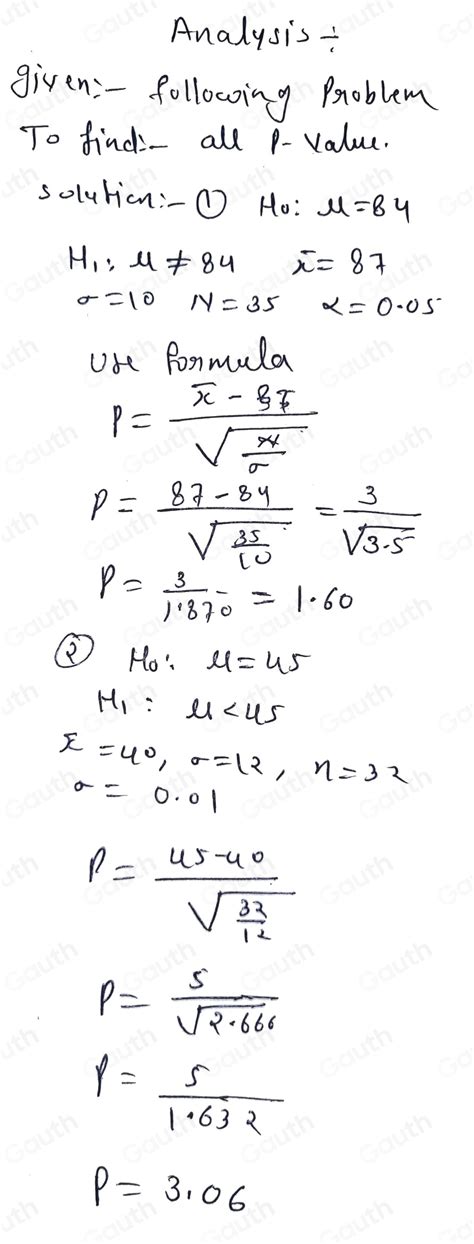 Analysis ÷
given:- following Problem
To find:- all P-value.
solution:- ① H₀: μ=84
H₁: μ≠84 x̄=87
σ=10 N=35 α=0.05
Use formula
P= x̄ - 
√ σ
P= 87-84 / √35/10 = 3 / √3.5
P= 3 / 1.870 = 1.60
② H₀: μ=45
H₁: μ<45
x̄=40, σ=12, n=32
σ= 0.01
P= 45-40 / √32/12
P= 5 / √2.666
P= 5 / 1.632
P= 3.06